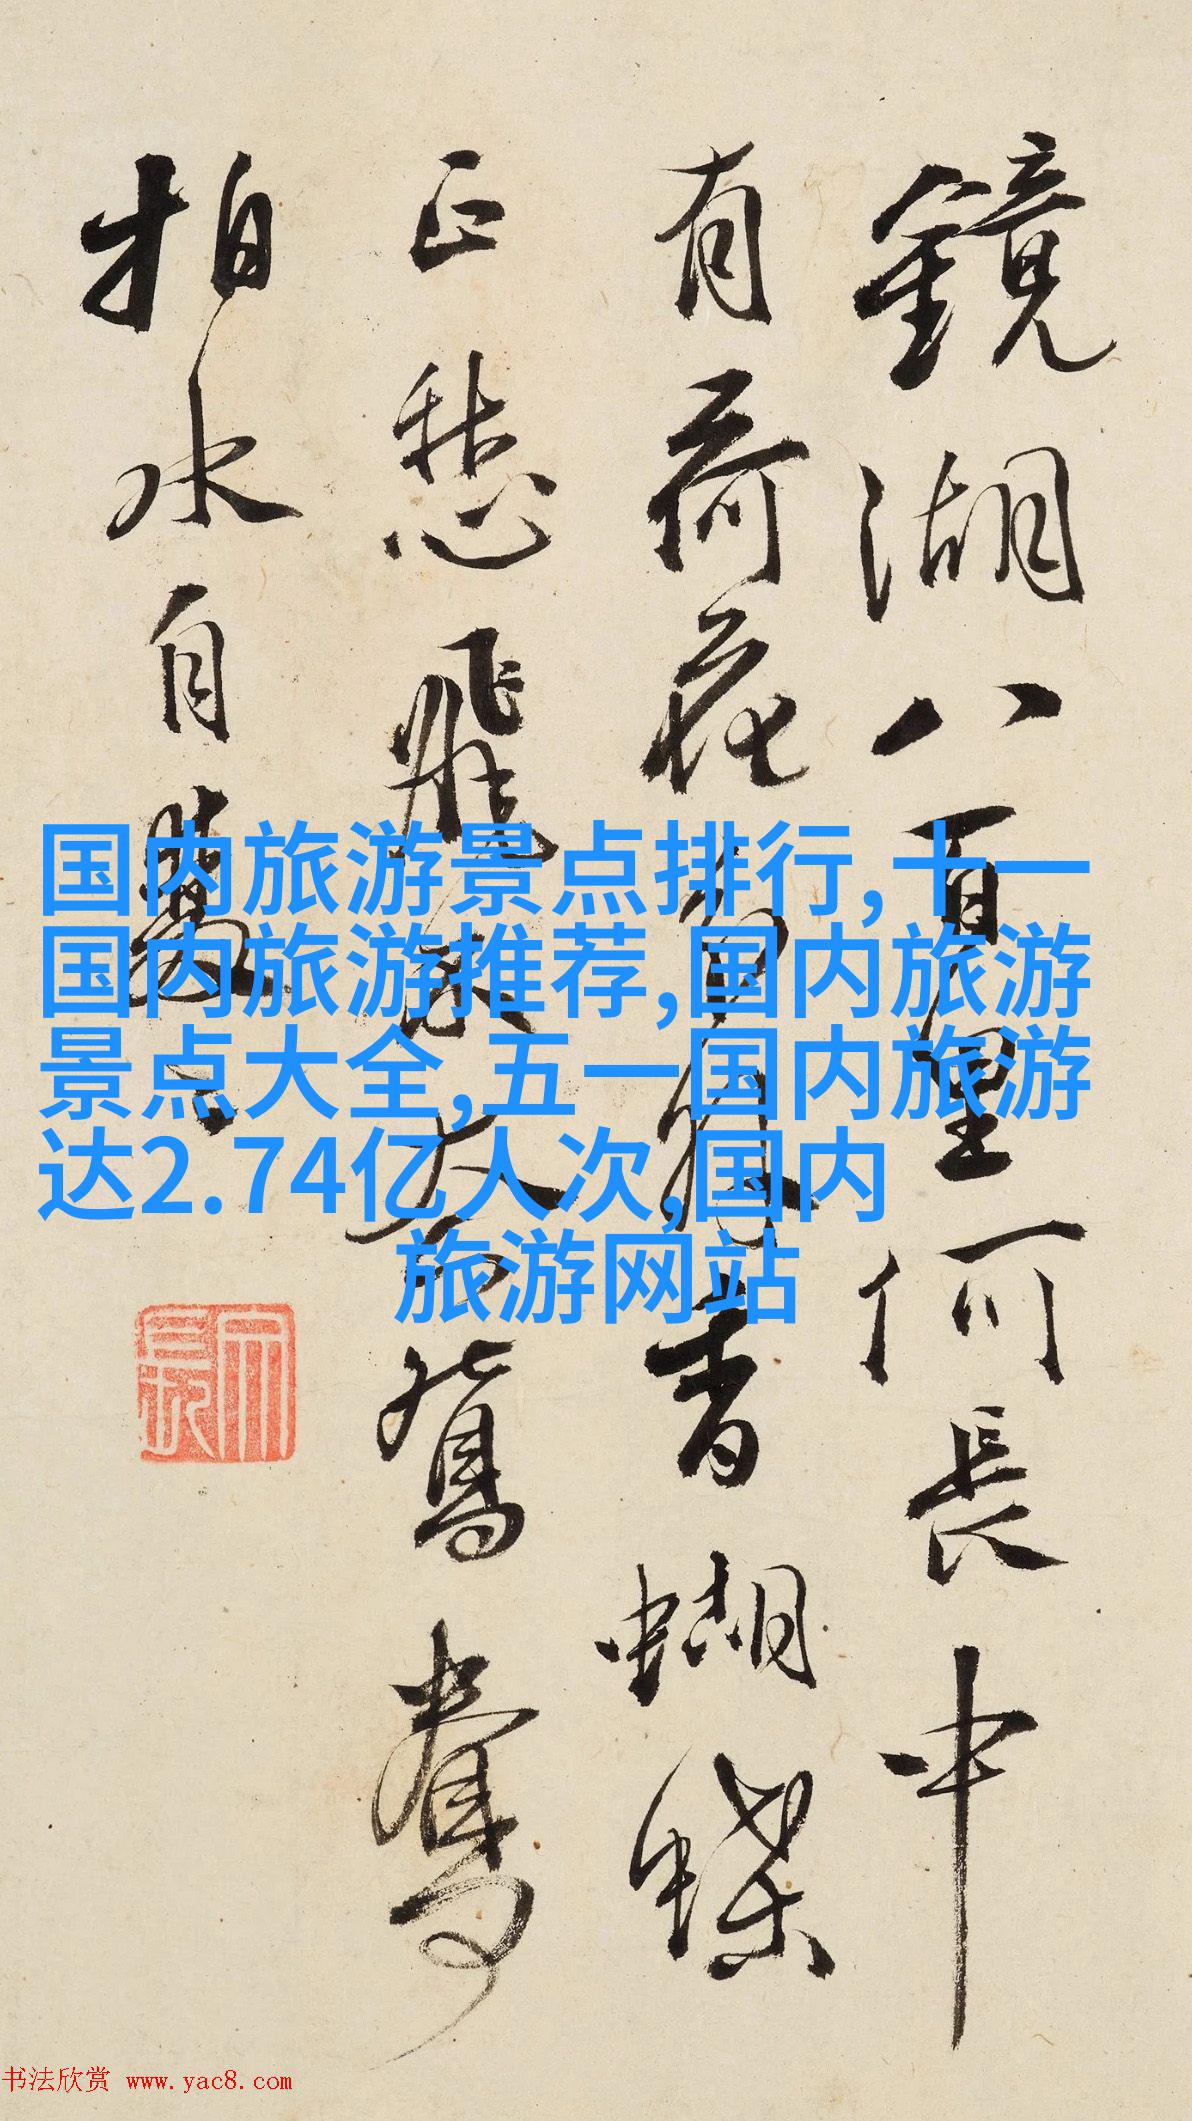 鏡湖八百里何長中
有荷花香蝴蝶
正愁飛鴛鴦
拍水自雙
国内旅游景点排行,十一
国内旅游推荐,国内旅游
景点大全,五一国内旅游
达2.74亿人次,国内
旅游网站
书法欣赏 www.yac8.com